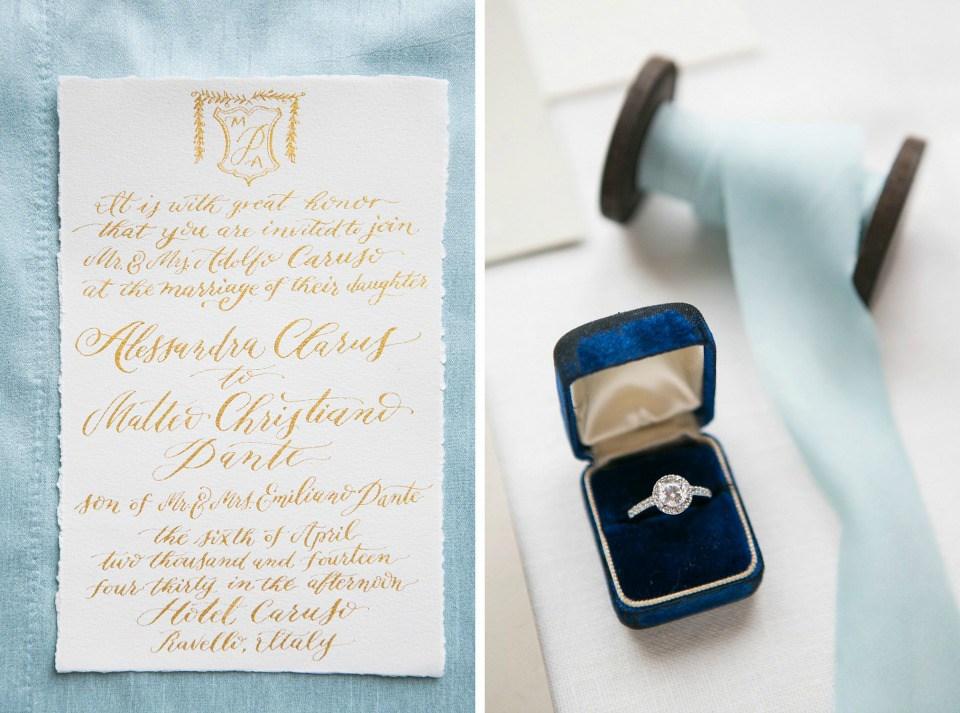 M
D
A
It is with great honor
that you are invited to join
Mr. & Mrs. Adolfo Caruso
at the marriage of their daughter
Alessandra Clarus
to
Matteo Christiano
Dante
son of Mr. & Mrs. Emiliano Dante
the sixth of April
two thousand and fourteen
four thirty in the afternoon
Hotel Caruso
Ravello, Italy